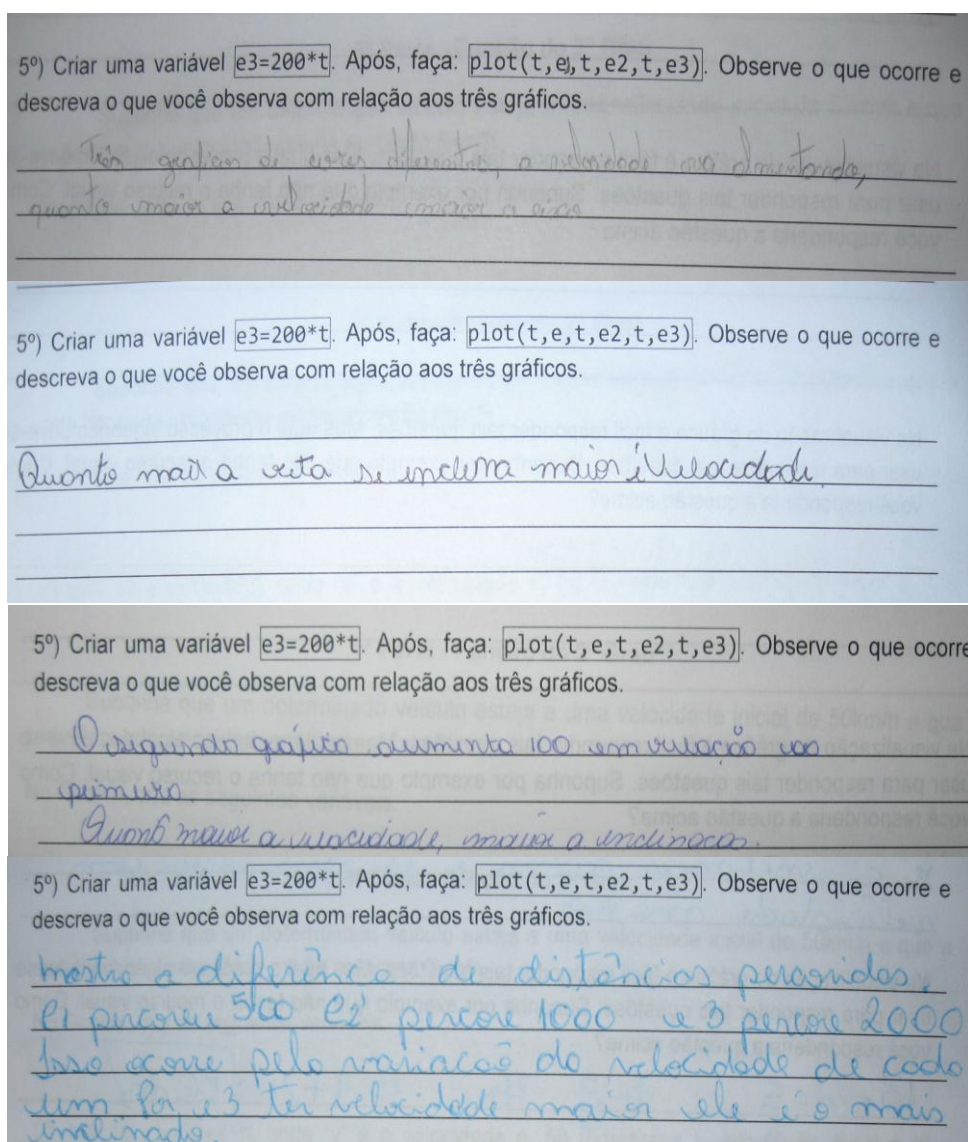 5º) Criar uma variável e3=200*t. Após, faça: plot(t,e,t,e2,t,e3). Observe o que ocorre e
descreva o que você observa com relação aos três gráficos.
Três de cores diferentes, a velocidade aumentando,
quanto maior a velocidade maior a
5º) Criar uma variável e3=200*t. Após, faça: plot(t,e,t,e2,t,e3). Observe o que ocorre e
descreva o que você observa com relação aos três gráficos.
Quanto mail a reta se inclina maior é Velocidade.
5º) Criar uma variável e3=200*t. Após, faça: plot(t,e,t,e2,t,e3). Observe o que ocorre
descreva o que você observa com relação aos três gráficos.
O segundo gráfico aumenta 100 em relação ao
primeiro.
Quanto maior a velocidade, maior a inclinação.
5º) Criar uma variável e3=200*t. Após, faça: plot(t,e,t,e2,t,e3). Observe o que ocorre e
descreva o que você observa com relação aos três gráficos.
mostra a diferência de distâncias percoridas,
e1 percorer 500 e2 percore 1000 e 3 percore 2000
Isso ocorre pelo variacaõ da velocidade de cada
um por e3 ter velocidade maior ele é o mais
inclinado.